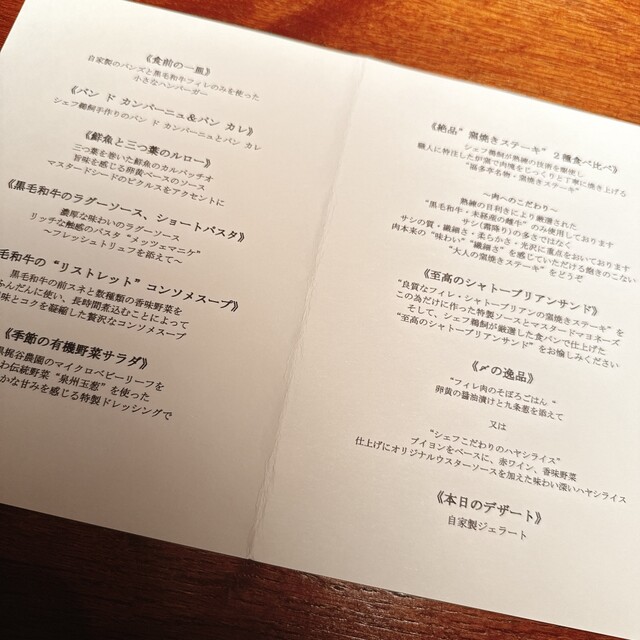 《食前の一皿》
自家製のバンズと黒毛和牛フィレのみを使った
小さなハンバーガー
《パン ド カンパーニュ＆パン カレ》
シェフ鵜飼手作りのパン ド カンパーニュとパン カレ
《鮮魚と三つ葉のルロー》
三つ葉を巻いた鮮魚のカルパッチオ
旨味を感じる卵黄ベースのソース
マスタードシードのピクルスをアクセントに
《黒毛和牛のラグーソース、ショートパスタ》
濃厚な味わいのラグーソース
リッチな触感のパスタ "メッツェマニケ"
～フレッシュトリュフを添えて～
毛和牛の "リストレット" コンソメスープ》
黒毛和牛の前スネと数種類の香味野菜を
ふんだんに使い、長時間煮込むことによって
味とコクを凝縮した贅沢なコンソメスープ
《季節の有機野菜サラダ》
梶谷農園のマイクロベビーリーフを
わ伝統野菜 "泉州玉葱" を使った
かな甘みを感じる特製ドレッシングで
《絶品"窯焼きステーキ" 2種食べ比べ》
シェフ鵜飼が熟練の技術を駆使し
職人に特注したが窯で肉塊をじっくりと丁寧に焼き上げる
"福多本名物・窯焼きステーキ"
～肉へのこだわり～
熟練の目利きにより厳選された
"黒毛和牛・未経産の雌牛" のみ使用しております
サシ(霜降り)の多さではなく
サシの質・繊細さ・柔らかさ・光沢に重点をおいております
肉本来の "味わい" "繊細さ" を感じていただける飽きのこない
"大人の窯焼きステーキ" をどうぞ
《至高のシャトーブリアンサンド》
"良質なフィレ・シャトーブリアンの窯焼きステーキ" を
この為だけに作った特製ソースとマスタードマヨネーズ
そして、シェフ鵜飼が厳選した食パンで仕上げた
"至高のシャトーブリアンサンド" をお愉しみください
《〆の逸品》
"フィレ肉のそぼろごはん "
卵黄の醤油漬けと九条葱を添えて
又は
"シェフこだわりのハヤシライス"
ブイヨンをベースに、赤ワイン、香味野菜
仕上げにオリジナルウスターソースを加えた味わい深いハヤシライス
《本日のデザート》
自家製ジェラート